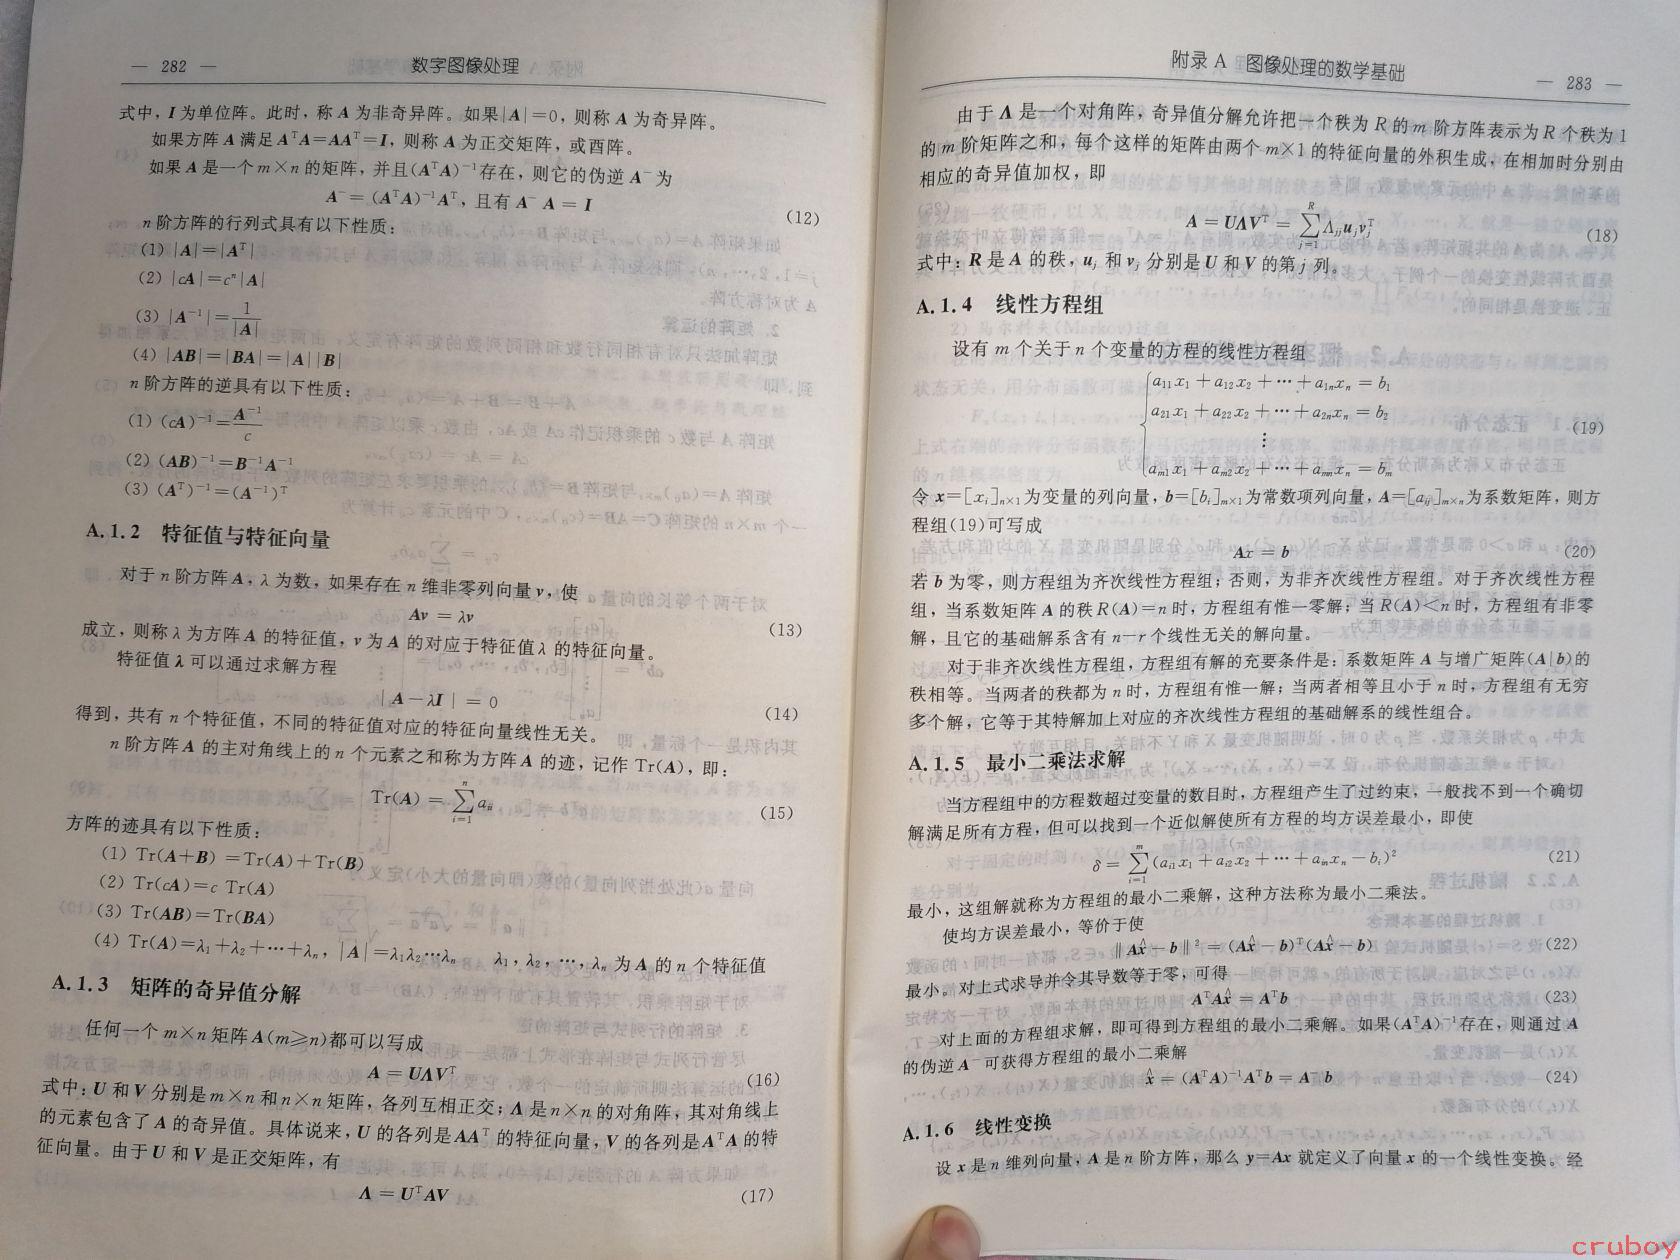 — 282 —
数字图像处理
式中，I为单位阵。此时，称A为非奇异阵。如果|A|=0，则称A为奇异阵。
如果方阵A满足AᵀA=AAᵀ=I，则称A为正交矩阵，或酉阵。
如果A是一个m×n的矩阵，并且(AᵀA)⁻¹存在，则它的伪逆A⁻为
A⁻=(AᵀA)⁻¹Aᵀ，且有A⁻A=I (12)
n阶方阵的行列式具有以下性质：
(1) |A|=|Aᵀ|
(2) |cA|=cⁿ|A|
(3) |A⁻¹|=1/|A|
(4) |AB|=|BA|=|A||B|
n阶方阵的逆具有以下性质：
(1) (cA)⁻¹=A⁻¹/c
(2) (AB)⁻¹=B⁻¹A⁻¹
(3) (Aᵀ)⁻¹=(A⁻¹)ᵀ
A.1.2 特征值与特征向量
对于n阶方阵A，λ为数，如果存在n维非零列向量v，使
Av=λv (13)
成立，则称λ为方阵A的特征值，v为A的对应于特征值λ的特征向量。
特征值λ可以通过求解方程
|A−λI|=0 (14)
得到，共有n个特征值，不同的特征值对应的特征向量线性无关。
n阶方阵A的主对角线上的n个元素之和称为方阵A的迹，记作Tr(A)，即：
Tr(A)=∑ᵢ₌₁ⁿ aᵢᵢ (15)
方阵的迹具有以下性质：
(1) Tr(A+B)=Tr(A)+Tr(B)
(2) Tr(cA)=c Tr(A)
(3) Tr(AB)=Tr(BA)
(4) Tr(A)=λ₁+λ₂+⋯+λₙ，|A|=λ₁λ₂⋯λₙ λ₁，λ₂，⋯，λₙ为A的n个特征值
A.1.3 矩阵的奇异值分解
任何一个m×n矩阵A(m≥n)都可以写成
A=UΛVᵀ (16)
式中：U和V分别是m×n和n×n矩阵，各列互相正交；Λ是n×n的对角阵，其对角线上
的元素包含了A的奇异值。具体说来，U的各列是AAᵀ的特征向量，V的各列是AᵀA的特
征向量。由于U和V是正交矩阵，有
Λ=UᵀAV (17)
附录A 图像处理的数学基础
— 283 —
由于Λ是一个对角阵，奇异值分解允许把一个秩为R的m阶方阵表示为R个秩为1
的m阶矩阵之和，每个这样的矩阵由两个m×1的特征向量的外积生成，在相加时分别由
相应的奇异值加权，即
A=UΛVᵀ=∑ⱼ₌₁ᴿ Λⱼⱼuⱼvⱼᵀ (18)
式中：R是A的秩，uⱼ和vⱼ分别是U和V的第j列。
A.1.4 线性方程组
设有m个关于n个变量的方程的线性方程组
a₁₁x₁+a₁₂x₂+⋯+a₁ₙxₙ=b₁
a₂₁x₁+a₂₂x₂+⋯+a₂ₙxₙ=b₂
⋮ (19)
aₘ₁x₁+aₘ₂x₂+⋯+aₘₙxₙ=bₘ
令x=[xᵢ]ₙₓ₁为变量的列向量，b=[bᵢ]ₘₓ₁为常数项列向量，A=[aᵢⱼ]ₘₓₙ为系数矩阵，则方
程组(19)可写成
Ax=b (20)
若b为零，则方程组为齐次线性方程组；否则，为非齐次线性方程组。对于齐次线性方程
组，当系数矩阵A的秩R(A)=n时，方程组有惟一零解；当R(A)<n时，方程组有非零
解，且它的基础解系含有n−r个线性无关的解向量。
对于非齐次线性方程组，方程组有解的充要条件是：系数矩阵A与增广矩阵(A|b)的
秩相等。当两者的秩都为n时，方程组有惟一解；当两者相等且小于n时，方程组有无穷
多个解，它等于其特解加上对应的齐次线性方程组的基础解系的线性组合。
A.1.5 最小二乘法求解
当方程组中的方程数超过变量的数目时，方程组产生了过约束，一般找不到一个确切
解满足所有方程，但可以找到一个近似解使所有方程的均方误差最小，即使
δ=∑ᵢ₌₁ᵐ(aᵢ₁x₁+aᵢ₂x₂+⋯+aᵢₙxₙ−bᵢ)² (21)
最小，这组解就称为方程组的最小二乘解，这种方法称为最小二乘法。
使均方误差最小，等价于使
‖Ax̂−b‖²=(Ax̂−b)ᵀ(Ax̂−b) (22)
最小。对上式求导并令其导数等于零，可得
AᵀAx̂=Aᵀb (23)
对上面的方程组求解，即可得到方程组的最小二乘解。如果(AᵀA)⁻¹存在，则通过A
的伪逆A⁻可获得方程组的最小二乘解
x̂=(AᵀA)⁻¹Aᵀb=A⁻b (24)
A.1.6 线性变换
设x是n维列向量，A是n阶方阵，那么y=Ax就定义了向量x的一个线性变换。经
cruboy